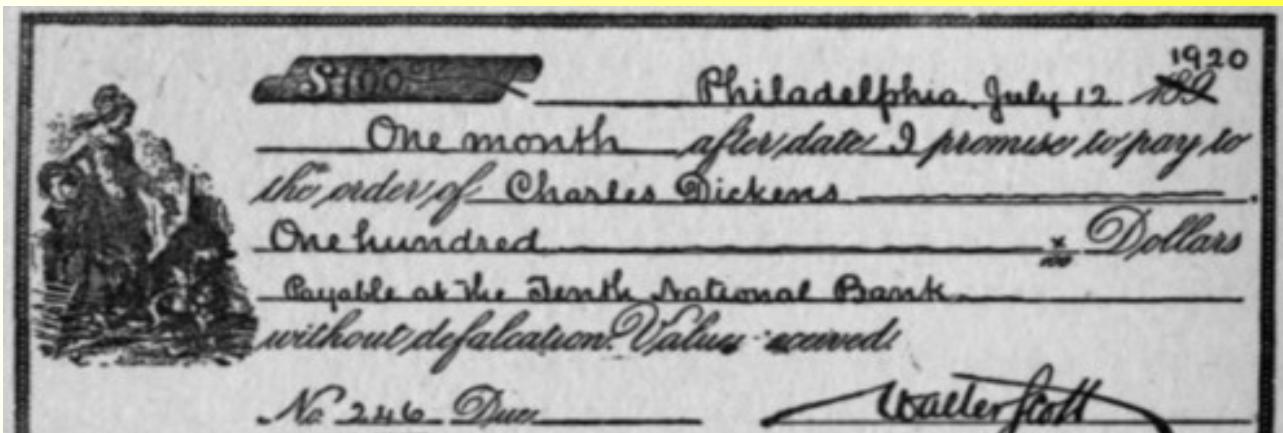 $100
Philadelphia, July 12 189 1920
One month after date I promise to pay to
the order of Charles Dickens
One hundred x/100 Dollars
Payable at the Tenth National Bank
without defalcation. Value received
No. 246 Due Walter Scott